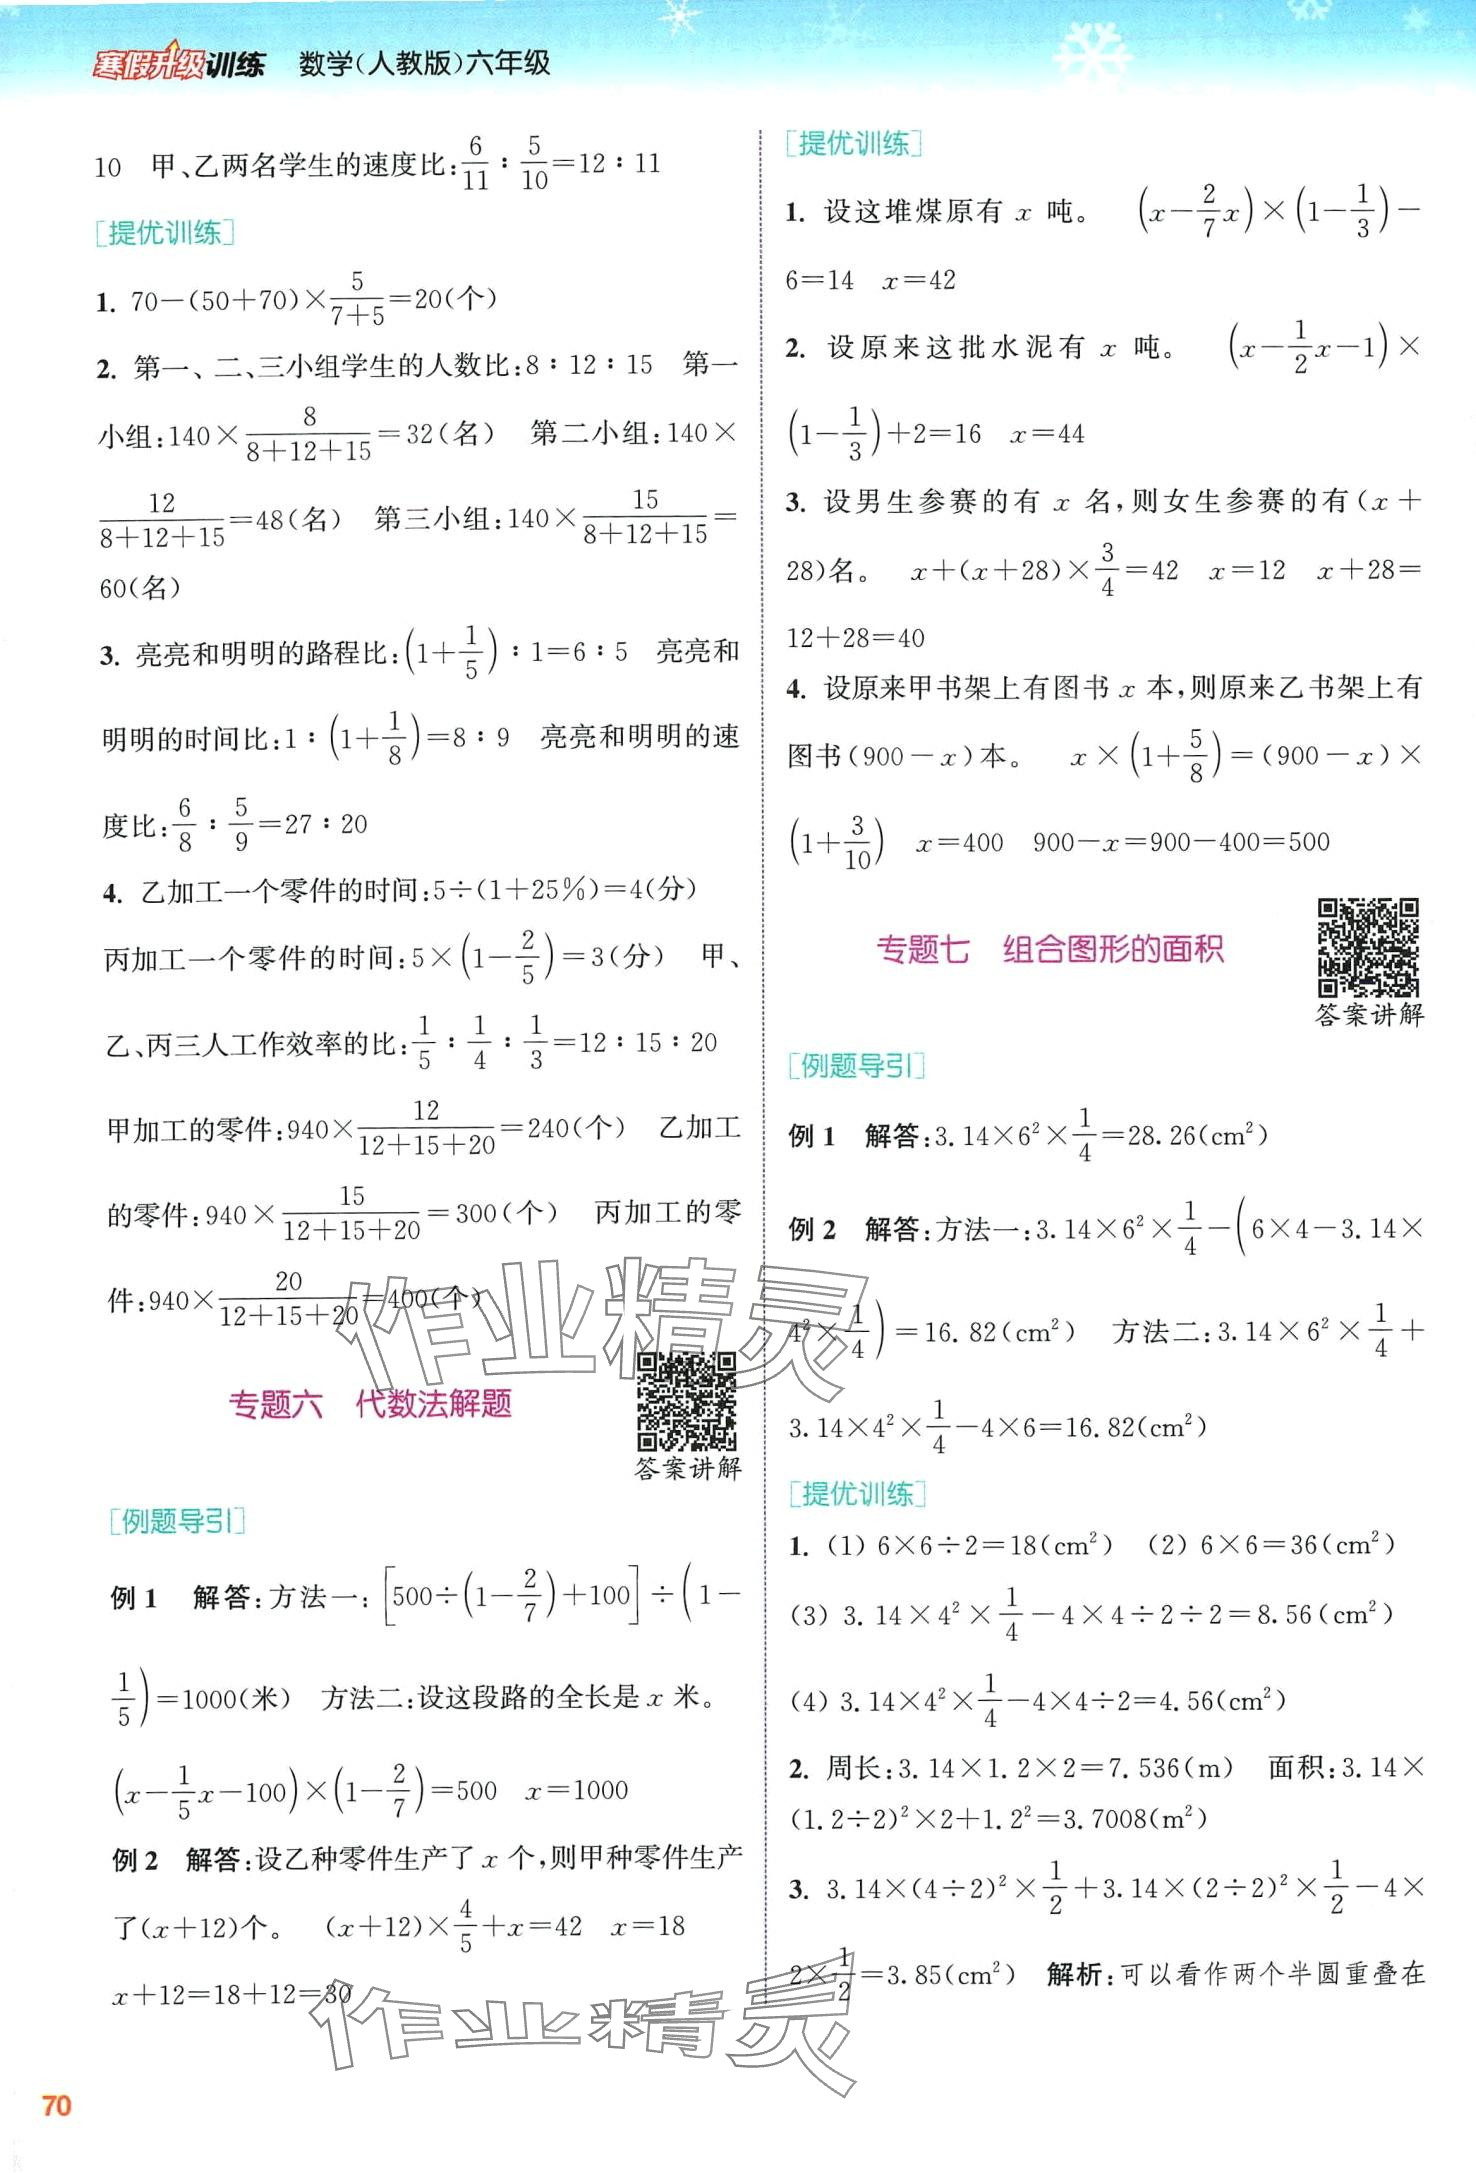 寒假升级训练 数学(人教版)六年级
10 甲、乙两名学生的速度比:6/11∶5/10=12∶11
[提优训练]
1. 70-(50+70)×5/(7+5)=20(个)
2. 第一、二、三小组学生的人数比:8∶12∶15 第一
小组:140×8/(8+12+15)=32(名) 第二小组:140×
12/(8+12+15)=48(名) 第三小组:140×15/(8+12+15)=
60(名)
3. 亮亮和明明的路程比:(1+1/5)∶1=6∶5 亮亮和
明明的时间比:1∶(1+1/8)=8∶9 亮亮和明明的速
度比:6/8∶5/9=27∶20
4. 乙加工一个零件的时间:5÷(1+25%)=4(分)
丙加工一个零件的时间:5×(1-2/5)=3(分) 甲、
乙、丙三人工作效率的比:1/5∶1/4∶1/3=12∶15∶20
甲加工的零件:940×12/(12+15+20)=240(个) 乙加工
的零件:940×15/(12+15+20)=300(个) 丙加工的零
件:940×20/(12+15+20)=400(个)
专题六 代数法解题
答案讲解
[例题导引]
例1 解答:方法一:[500÷(1-2/7)+100]÷(1-
1/5)=1000(米) 方法二:设这段路的全长是x米。
(x-1/5x-100)×(1-2/7)=500 x=1000
例2 解答:设乙种零件生产了x个,则甲种零件生产
了(x+12)个。 (x+12)×4/5+x=42 x=18
x+12=18+12=30
[提优训练]
1. 设这堆煤原有x吨。 (x-2/7x)×(1-1/3)-
6=14 x=42
2. 设原来这批水泥有x吨。 (x-1/2x-1)×
(1-1/3)+2=16 x=44
3. 设男生参赛的有x名,则女生参赛的有(x+
28)名。 x+(x+28)×3/4=42 x=12 x+28=
12+28=40
4. 设原来甲书架上有图书x本,则原来乙书架上有
图书(900-x)本。 x×(1+5/8)=(900-x)×
(1+3/10) x=400 900-x=900-400=500
专题七 组合图形的面积
答案讲解
[例题导引]
例1 解答:3.14×6²×1/4=28.26(cm²)
例2 解答:方法一:3.14×6²×1/4-(6×4-3.14×
4²×1/4)=16.82(cm²) 方法二:3.14×6²×1/4+
3.14×4²×1/4-4×6=16.82(cm²)
[提优训练]
1. (1) 6×6÷2=18(cm²) (2) 6×6=36(cm²)
(3) 3.14×4²×1/4-4×4÷2÷2=8.56(cm²)
(4) 3.14×4²×1/4-4×4÷2=4.56(cm²)
2. 周长:3.14×1.2×2=7.536(m) 面积:3.14×
(1.2÷2)²×2+1.2²=3.7008(m²)
3. 3.14×(4÷2)²×1/2+3.14×(2÷2)²×1/2-4×
2×1/2=3.85(cm²) 解析:可以看作两个半圆重叠在
作业精灵
作业精灵
70